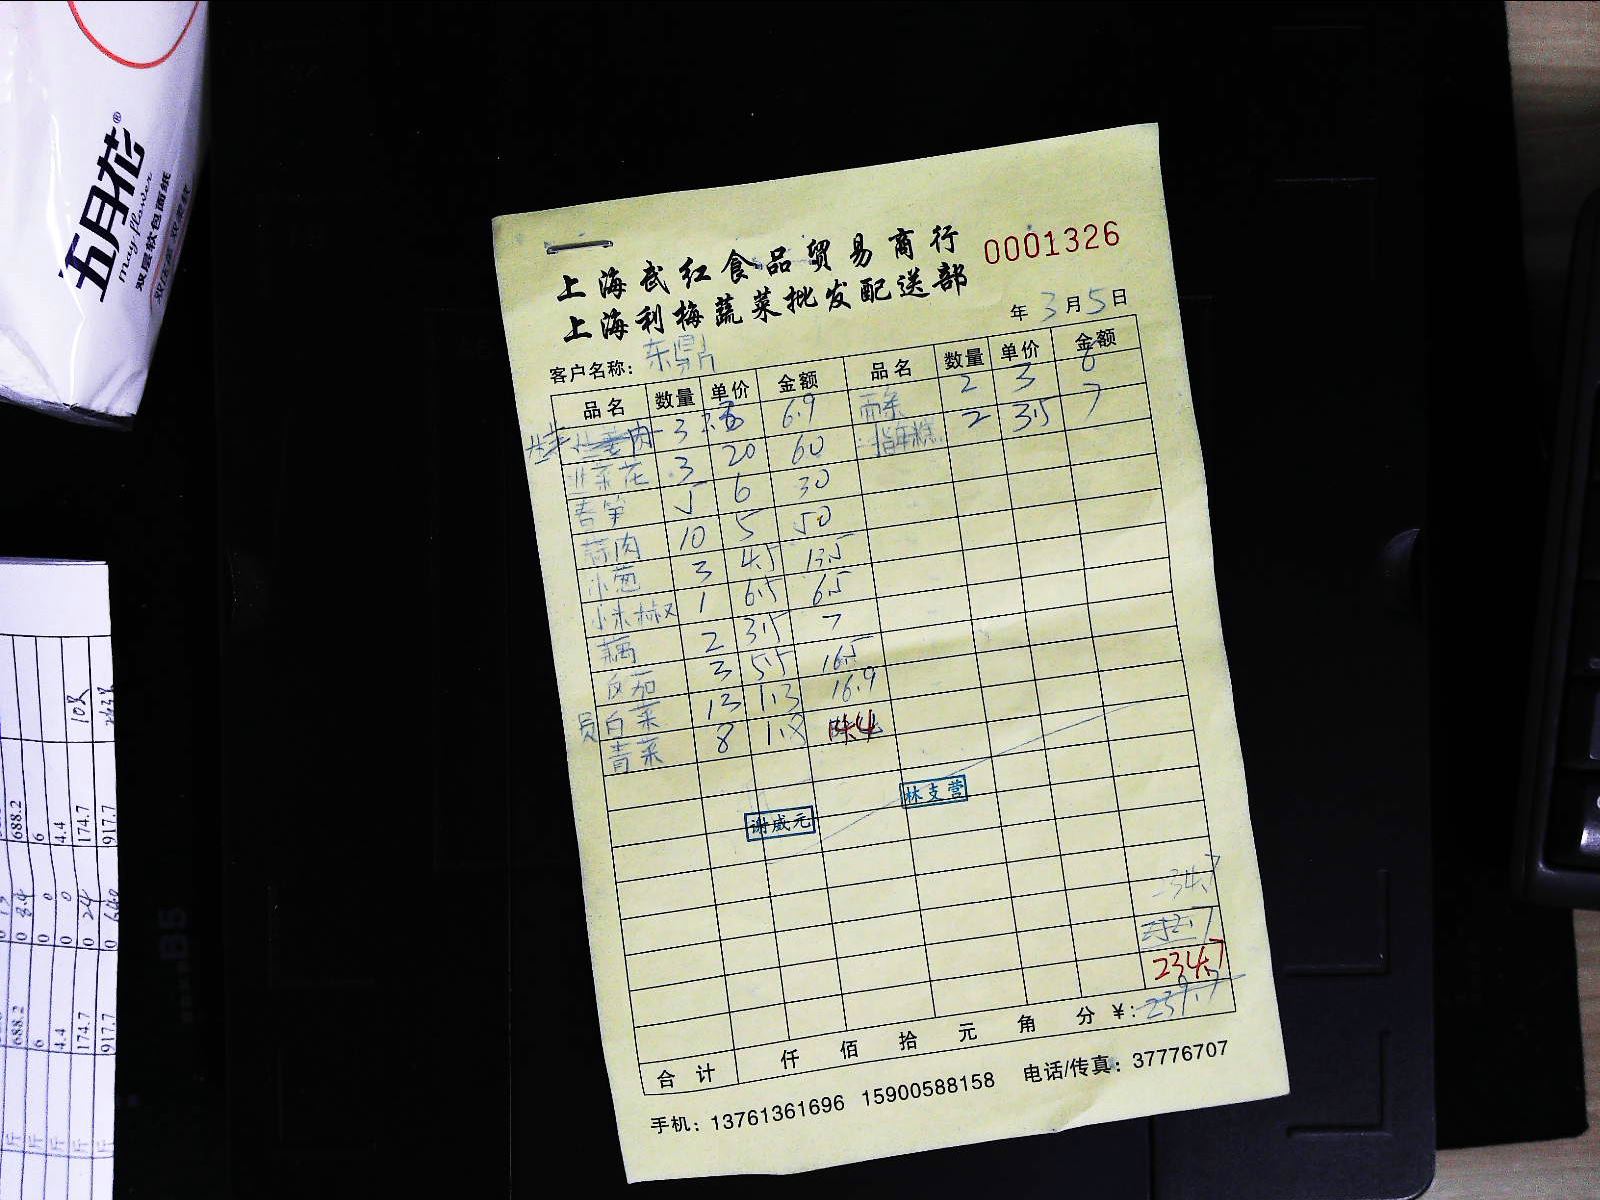 五月花®
may flower
双层软包面纸
上海武红食品贸易商行
0001326
上海利梅蔬菜批发配送部
年 3 月 5 日
客户名称: 东鼎
品名 数量 单价 金额 品名 数量 单价 金额
3 6.9 2 3 6
韭菜花 3 20 60 2 3.5 7
春笋 5 6 30
蒜肉 10 5 50
小葱 3 4.5 13.5
小米椒 1 6.5 6.5
藕 2 3.5 7
3 5.5 16.5
白菜 13 1.3 16.9
青菜 8 1.8 14.4
林支营
谢威元
234.7
234.7
239.7
合计 仟 佰 拾 元 角 分 ¥:
手机: 13761361696 15900588158 电话/传真: 37776707
10只
688.2
6
4.4
174.7
917.7
0
0
0 24
0
688.2
6
4.4
174.7
917.7
斤
斤
斤
斤
斤
B5